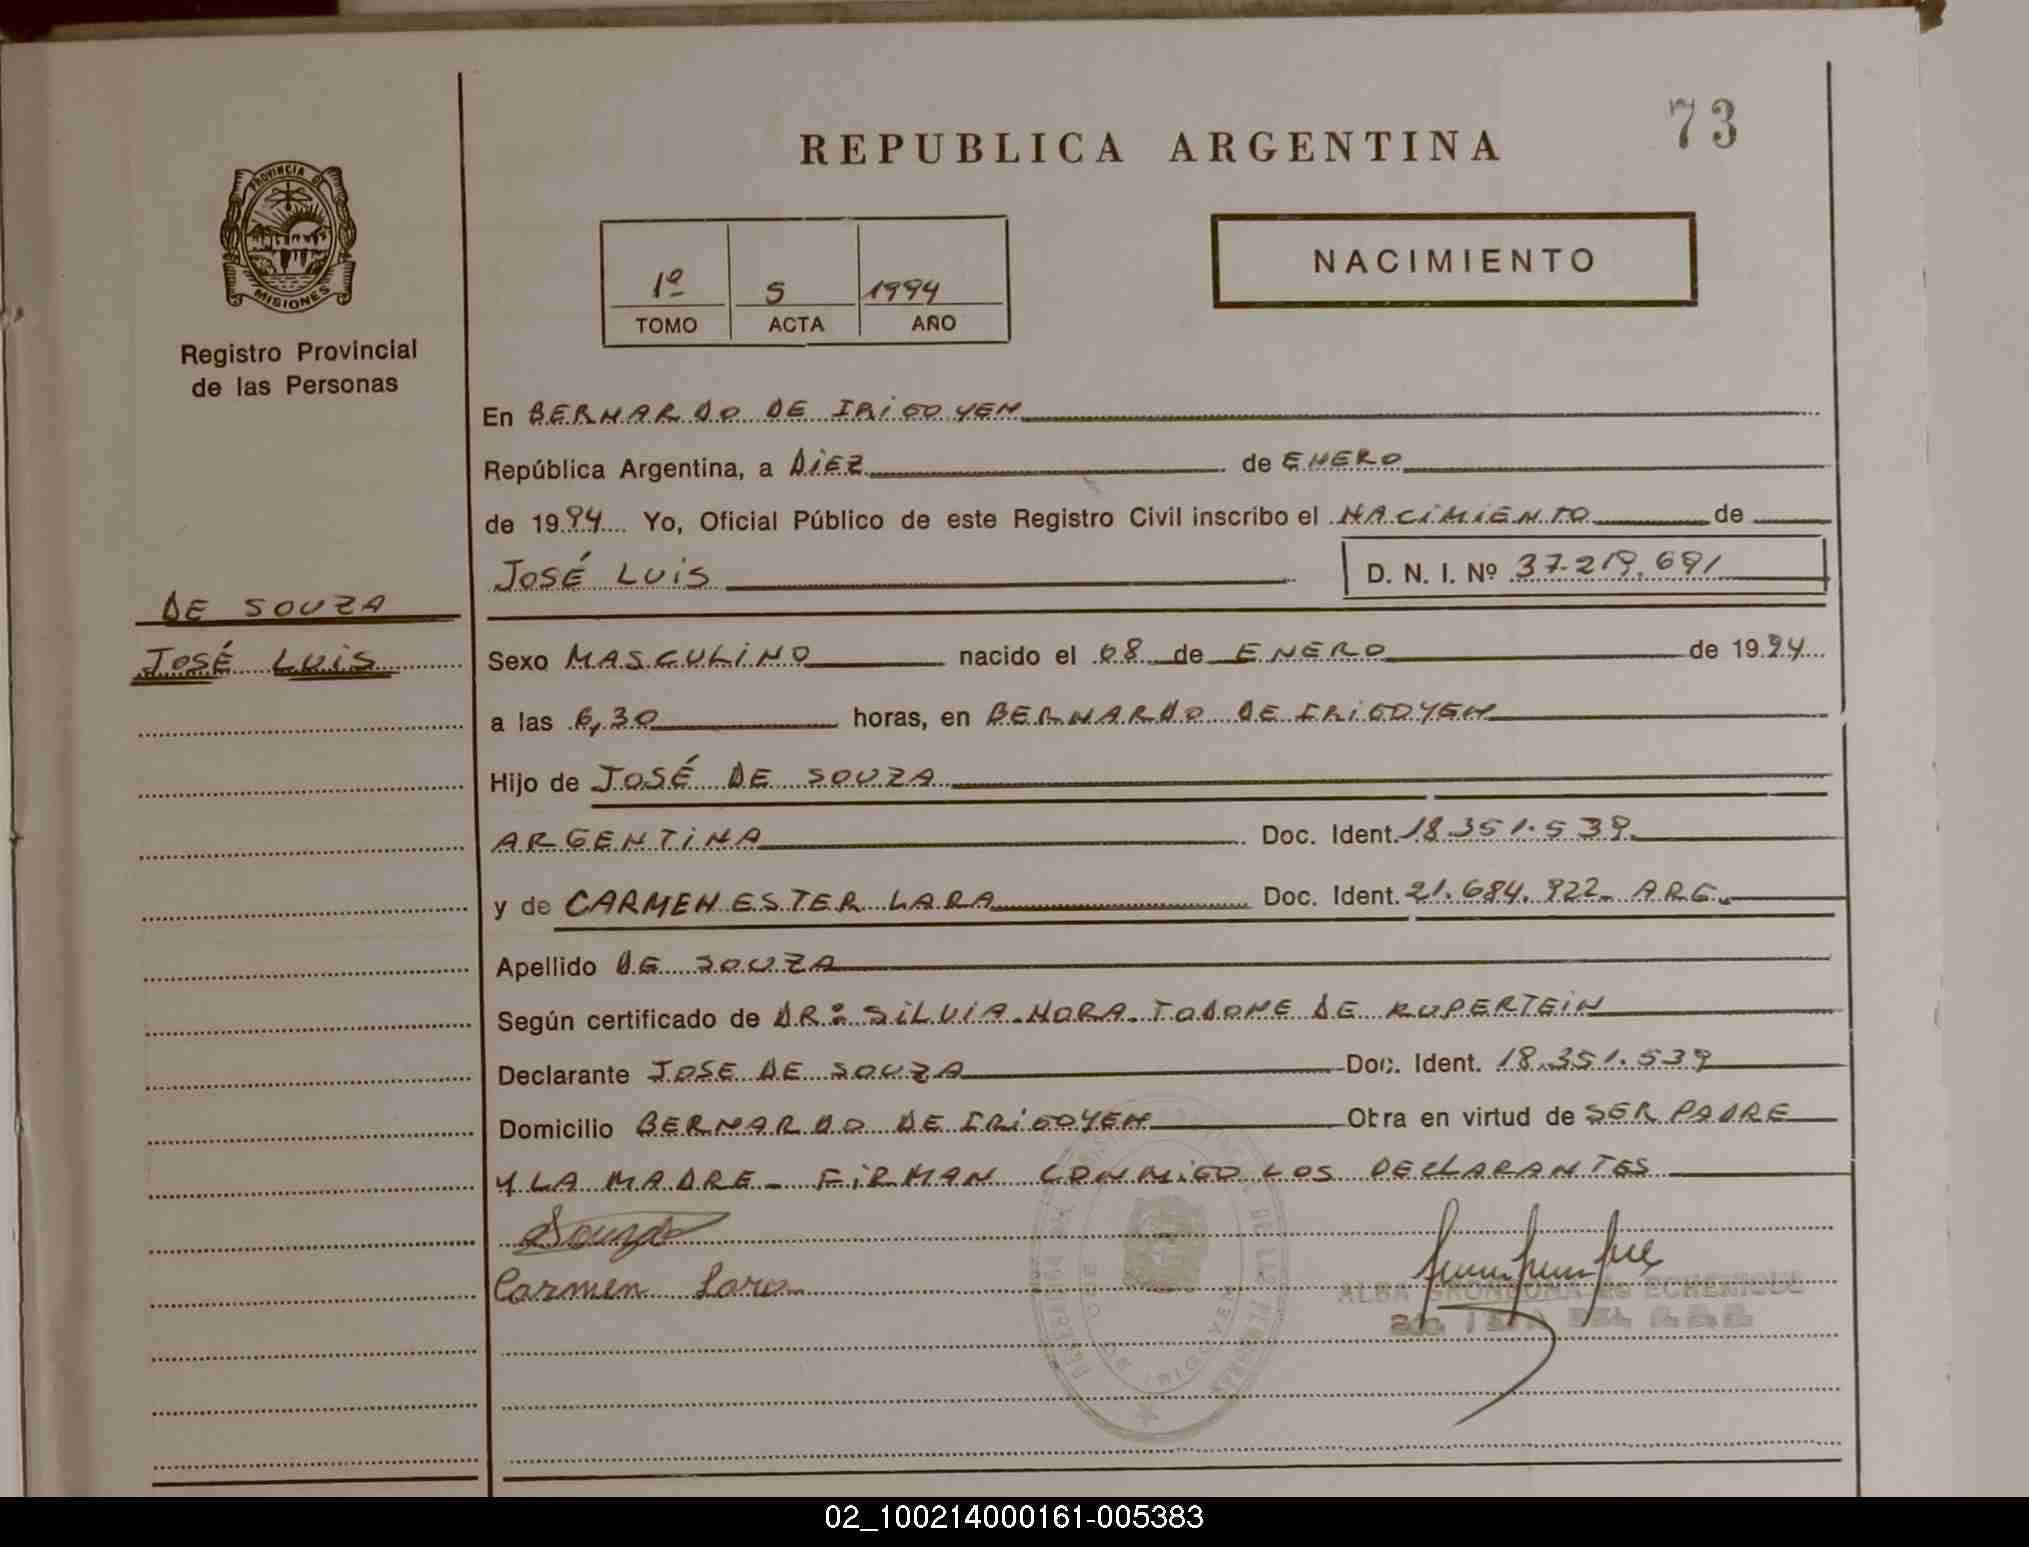 REPUBLICA ARGENTINA
73
PROVINCIA DE
MISIONES
Registro Provincial
de las Personas
1º 5 1994
TOMO ACTA AÑO
NACIMIENTO
En BERNARDO DE IRIGOYEN
República Argentina, a DIEZ de ENERO
de 1994 Yo, Oficial Público de este Registro Civil inscribo el NACIMIENTO de
JOSÉ LUIS D. N. I. Nº 37.219.691
DE SOUZA
JOSÉ LUIS
Sexo MASCULINO nacido el 08 de ENERO de 1994
a las 6,30 horas, en BERNARDO DE IRIGOYEN
Hijo de JOSÉ DE SOUZA
ARGENTINA Doc. Ident. 18.351.539
y de CARMEN ESTER LARA Doc. Ident. 21.684.922- ARG.
Apellido DE SOUZA
Según certificado de DRª SILVIA NORA TODONE DE RUPERTEIN
Declarante JOSE DE SOUZA Doc. Ident. 18.351.539
Domicilio BERNARDO DE IRIGOYEN Obra en virtud de SER PADRE
Y LA MADRE - FIRMAN CONMIGO LOS DECLARANTES
Souza
Carmen Lara
ALBA GRONDONA de ECHENIQUE
02_100214000161-005383